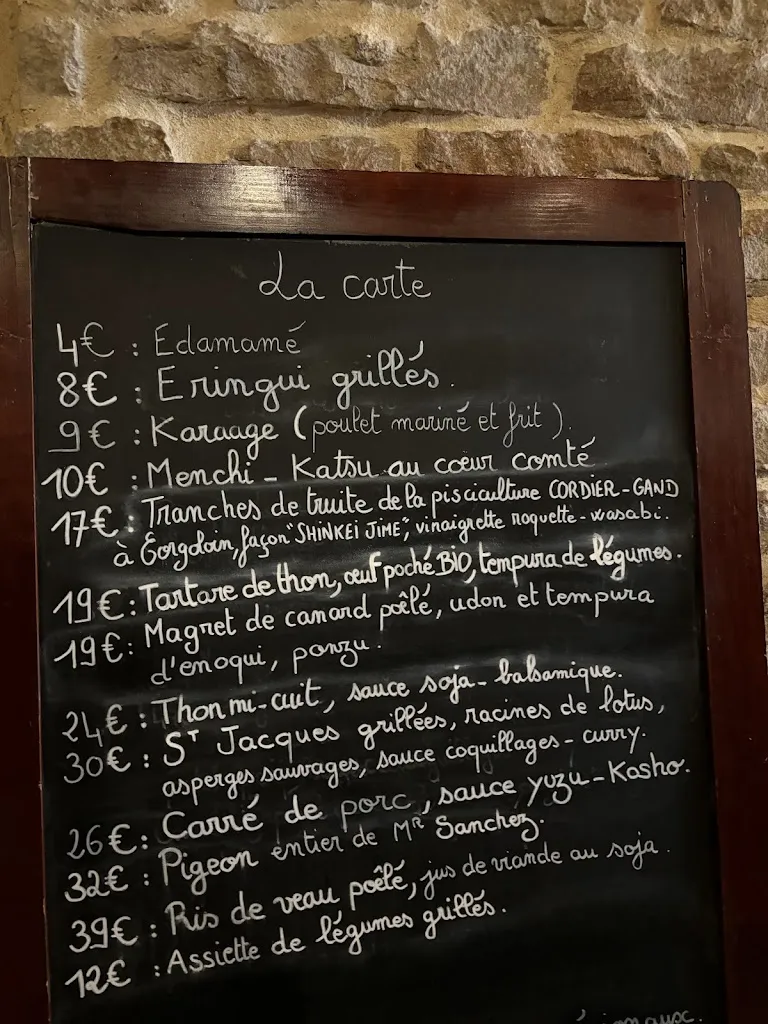 La carte
4€ : Edamamé
8€ : Eringui grillés.
9€ : Karaage (poulet mariné et frit).
10€ : Menchi-Katsu au cœur comté
17€ : Tranches de truite de la pisciculture CORDIER-GAND
à Gorgdoin, façon "SHINKEI JIME", vinaigrette roquette-wasabi.
19€ : Tartare de thon, œuf poché BIO, tempura de légumes.
19€ : Magret de canard poêlé, udon et tempura
d'enoqui, ponzu.
24€ : Thon mi-cuit, sauce soja-balsamique.
30€ : St Jacques grillées, racines de lotus,
asperges sauvages, sauce coquillages-curry.
26€ : Carré de porc, sauce yuzu-Kosho.
32€ : Pigeon entier de Mr Sanchez.
39€ : Ris de veau poêlé, jus de viande au soja.
12€ : Assiette de légumes grillés.